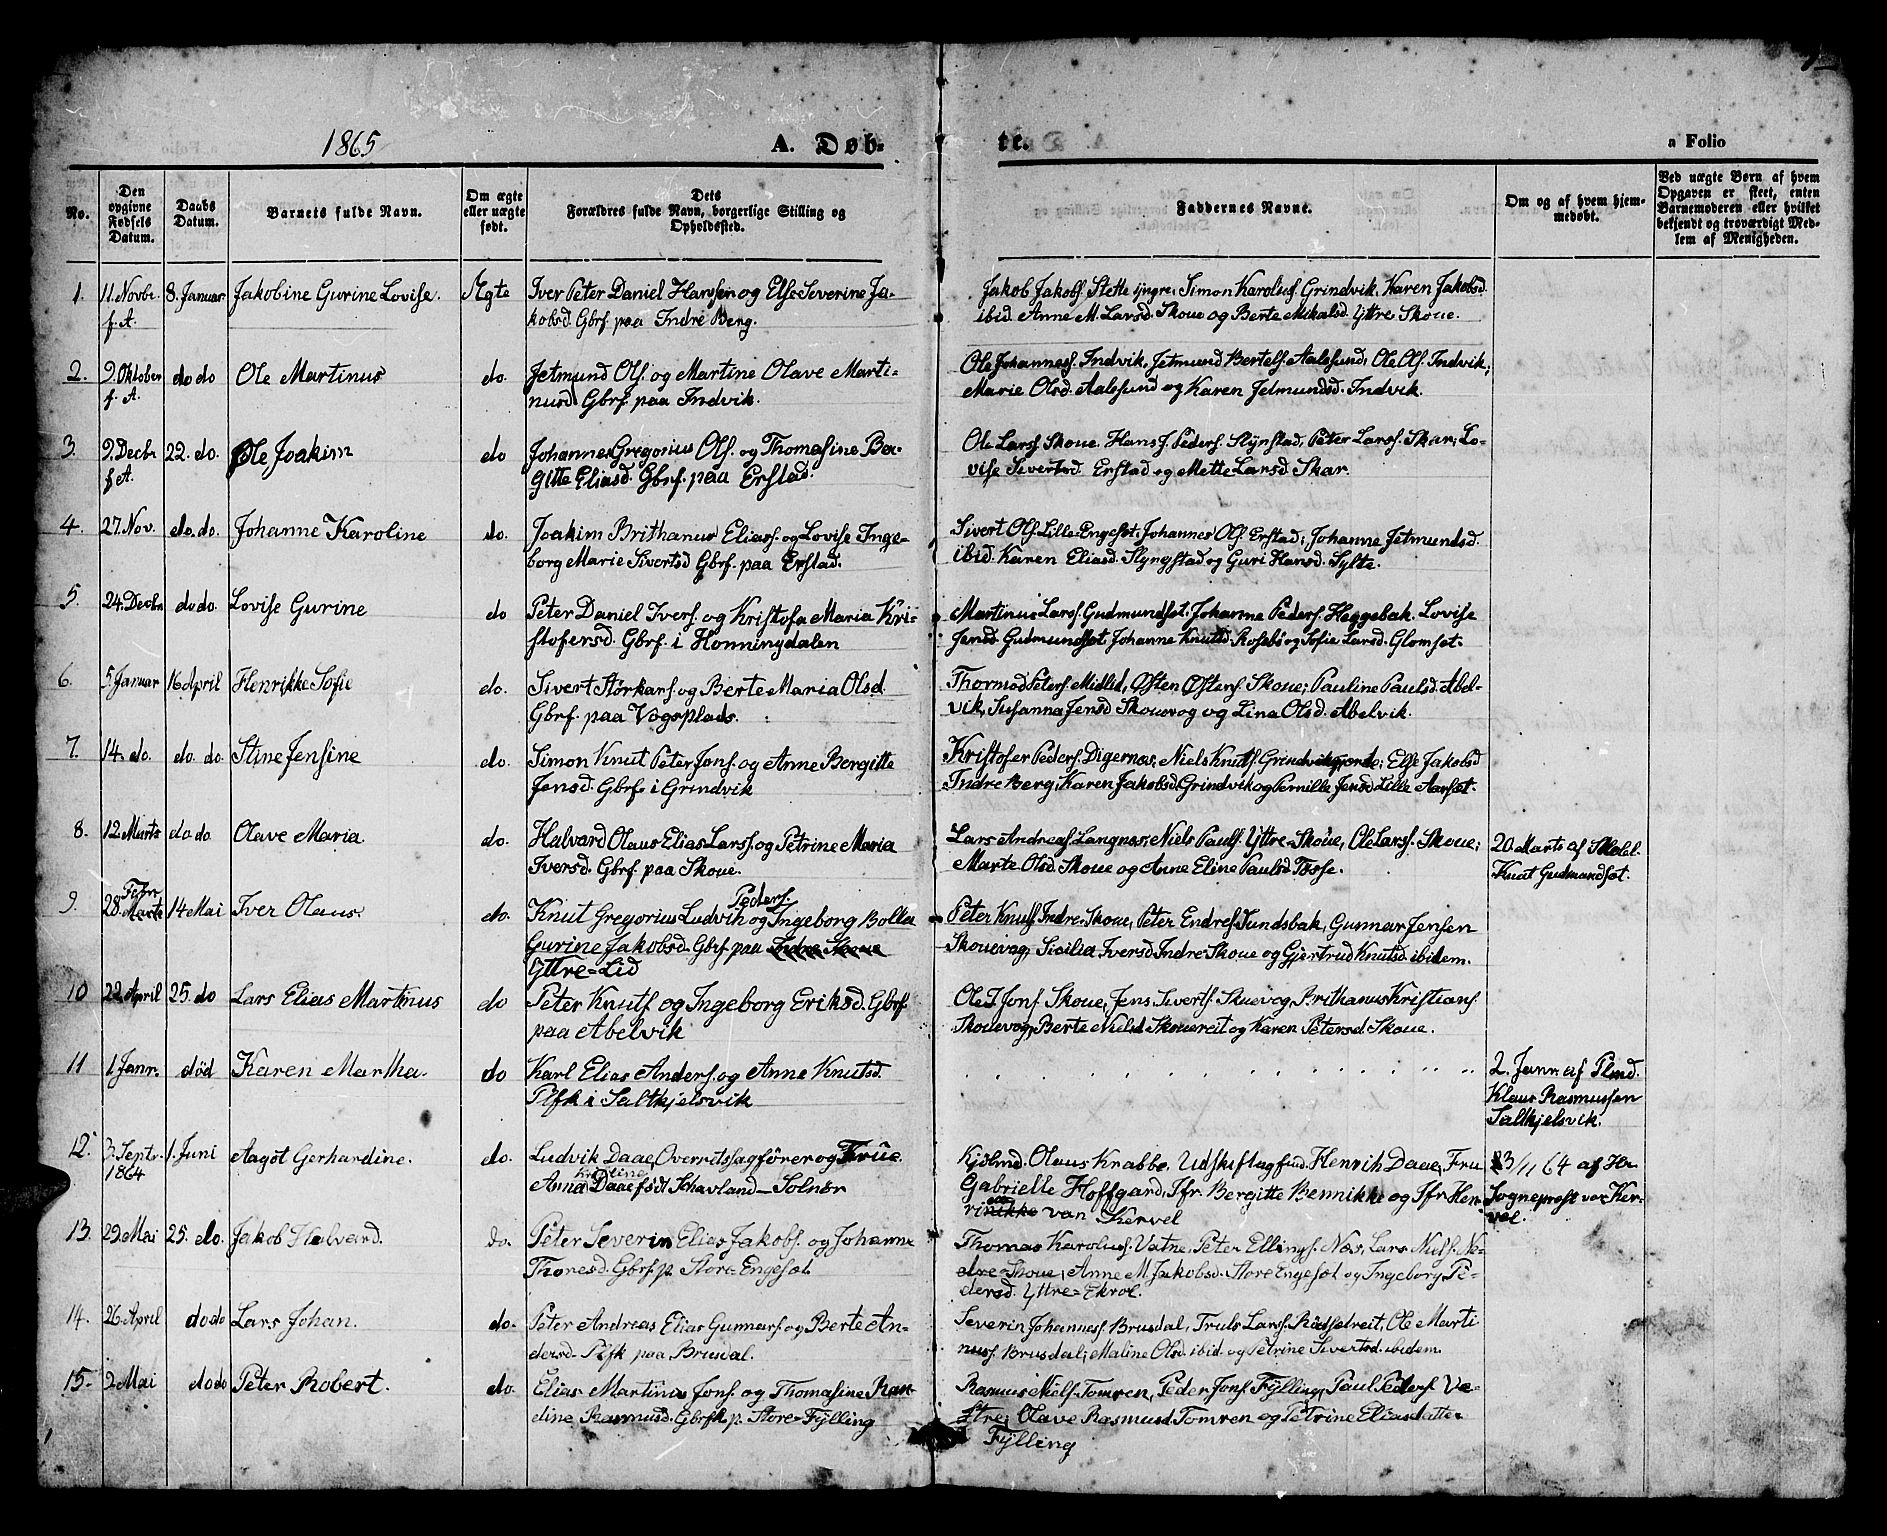 1865
A. Døb-
te.
a Folio
No.
Den opgivne Fødsels Datum.
Daabs Datum.
Barnets fulde Navn.
Om ægte eller uægte født.
Dets Forældres fulde Navn, borgerlige Stilling og Opholdssted.
Faddernes Navne.
Om og af hvem hjemmedøbt.
Ved uægte Børn af hvem Opgaven er skeet, enten Barnemoderen eller hvilket bekjendt og troværdigt Medlem af Menigheden.
1. 11. Novbr. f. A. 8. Januar Jakobine Gurine Lovise. Ægte
Iver Peter Daniel Hansen og Else Severine Ja-
kobsd. Gbrf paa Indre Berg.
Jakob Jakobs. Stette yngre; Simon Karolus. Grindvik. Karen Jakobsd.
ibid. Anne M. Larsd. Skoue og Berte Mikalsd. Yttre Skoue.
2. 9. Oktober f. A. do do Ole Martinus do.
Jetmund Ols. og Martine Olave Marti-
nusd Gbrf. paa Indvik.
Ole Johannes. Indvik, Jetmund Bertels. Aalesund; Ole Ols. Indvik;
Marie Olsd. Aalesund og Karen Jetmundsd. Indvik.
3. 9. Decbr f A. 22. do. Ole Joakim do
Johannes Gregorius Ols. og Thomasine Ber-
gitte Eliasd. Gbrf. paa Erstad.
Ole Larss. Skoue. Hans J. Peders. Slynstad, Peter Larss. Skar; Lo-
vise Sivertsd. Erstad og Mette Larsd. Skar.
4. 27. Nov. do. do. Johanne Karoline do.
Joakim Brithanus Elias. og Lovise Inge-
borg Marie Sivertsd Gbrf. paa Erstad.
Sivert Ols. Lille Engeset; Johannes Ols. Erstad; Johanne Jetmundsd.
ibid. Karen Eliasd. Slyngstad og Guri Hansd. Sylte.
5. 24. Decbr do do. Lovise Gurine do
Peter Daniel Ivers. og Kristofa Maria Kri-
stofersd. Gbrf. i Honningdalen
Martinus Larss. Gudmundset; Johanne Peders. Heggebak. Lovise
Jensd Gudmundset Johanne Knutsd. og Sofie Larsd. Glomset.
6. 5. Januar 16 April Henrikke Sofie do.
Sivert Størkars. og Berte Maria Olsd.
Gbrf. paa Vagsplads.
Thormod Peters. Midlid, Østen Østens. Skoue; Pauline Paulsd. Abel-
vik, Susanna Jensd Skouevog og Lina Olsd. Abelvik.
7. 14. do. do. do. Stine Jensine do.
Simon Knut Peter Jons. og Anne Bergitte
Jensd. Gbrf. i Grindvik
Kristofer Peders. Digernes, Niels Knuts. Else Jakobsd
Indre Berg, Karen Jakobsd. Grindvik og Pernille Jensd Lille Aarset.
8. 12. Marts do do Olave Maria do.
Halvard Olaus Elias Larss. og Petrine Maria
Iversd. Gbrf. paa Skoue.
Lars Andreas. Langnes; Niels Pauls. Yttre-Skoue, Ole Larss. Skoue;
Marte Olsd. Skoue og Anne Eline Paulsd. Tosse.
20. Marts af Skolel.
Knut Gudmundset.
9. 28. Febr. Marts 14 Mai Iver Olaus. do.
Peders.
Knut Gregorius Ludvik og Ingeborg Bolla
Gurine Jakobsd. Gbrf. paa Indre Skoue
Yttre-Lid
Peter Knuts Indre-Skoue, Peter Endres. Sundsbak, Gunnar Jensen
Skouevog, Sicilia Iversd. Indre Skoue og Gjertrud Knutsd. ibidem.
10 22 April 25. do Lars Elias Martinus do
Peter Knuts og Ingeborg Eriksd. Gbrf.
paa Abelvik
Ole I Jons. Skoue, Jens Siverts. Skouevog, Brithanus Kristians.
Skouevog, Berte Nielsd. Skouereit og Karen Petersd Skoue.
11 1 Janr. død Karen Martha. do
Karl Elias Anders. og Anne Knutsd.
Plfk i Saltkjelsvik
2. Janr. af Plmd.
Klaus Rasmussen
Saltkjelsvik.
12. 3. Septr. 1864 1. Juni Aagot Gerhardine. do.
Ludvik Daae, Overretssagfører og Frue
Kristine
Anna Daae født Schavland-Solnør
Kjöbmd. Olaus Krabbe. Udskiftngfmd. Henrik Daae, Fru
Gabrielle Hoffgard, Jfr. Bergitte Bennikke og Jfr. Hen-
van Kervel
23/11 64 af Hr
Sogneprest van Ker-
vel.
13. 29. Mai 25. do. Jakob Halvard. do.
Peter Severin Elias Jakobs. og Johanne
Thoresd. Gbrf. p. Store-Engeset
Thomas Karolus. Vatne, Peter Ellings. Nos, Lars Niels. Ne-
dre-Skoue, Anne M. Jakobsd. Store Engeset og Ingeborg Pe-
dersd. Yttre-Ekrol.
14. 26. April do do Lars Johan. do.
Peter Andreas Elias Gunnars. og Berte An-
dersd. Plfk paa Brusdal.
Severin Johannes. Brusdal, Truls Larss. Rødsetreit, Ole Marti
nuss. Brusdal; Maline Olsd. ibid. og Petrine Sivertsd. ibidem.
15. 2. Mai do do Peter Robert. do.
Elias Martinus Jons. og Thomasine Ran-
dine Rasmusd. Gbrfk p. Store-Fylling
Rasmus Niels. Tomren, Peder Jons. Fylling, Paul Peders. Ve-
stre; Olave Rasmusd Tomren og Petrine Eliasdatter
Fylling